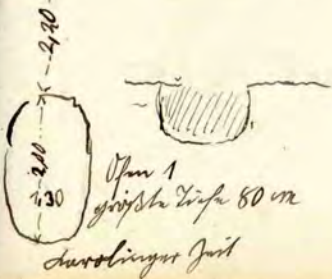 2,20
2,00
1,30
Ofen 1
größte Tiefe 80 cm
Karolinger Zeit